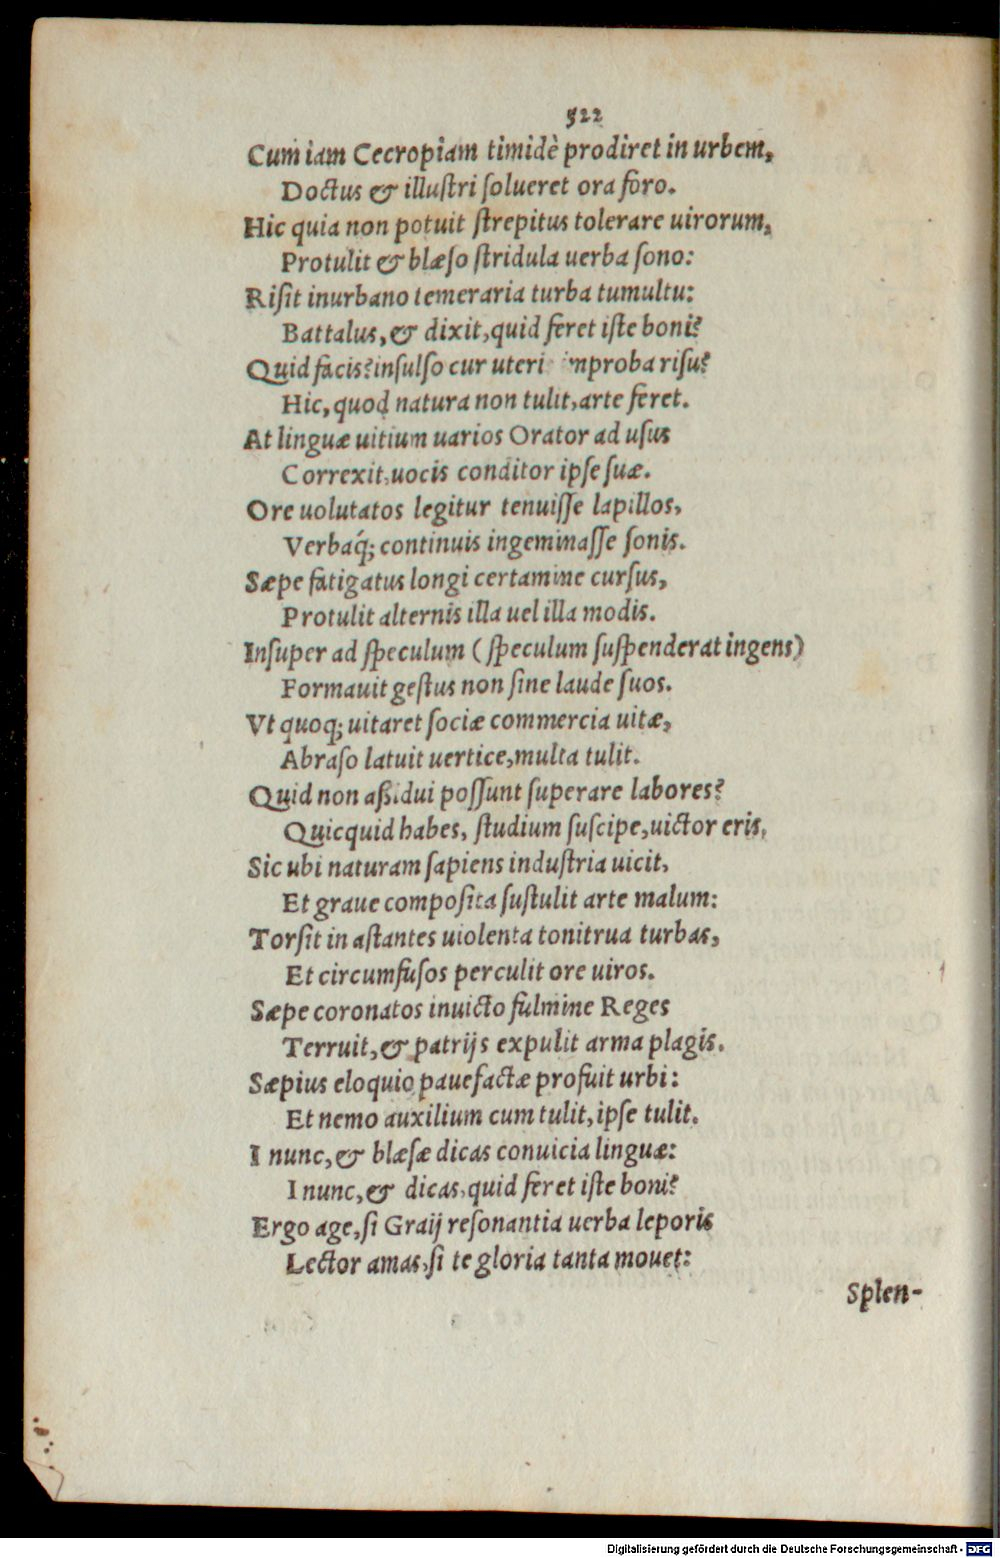 522
Cum iam Cecropiam timidè prodiret in urbem,
Doctus & illustri solueret ora foro.
Hic quia non potuit strepitus tolerare uirorum,
Protulit & blæso stridula uerba sono:
Risit inurbano temeraria turba tumultu:
Battalus, & dixit, quid feret iste boni?
Quid facis? insulso cur uteri mproba risu?
Hic, quod natura non tulit, arte feret.
At linguæ uitium uarios Orator ad usus
Correxit, uocis conditor ipse suæ.
Ore uolutatos legitur tenuisse lapillos,
Verbaq́; continuis ingeminasse sonis.
Sæpe fatigatus longi certamine cursus,
Protulit alternis illa uel illa modis.
Insuper ad speculum (speculum suspenderat ingens)
Formauit gestus non sine laude suos.
Vt quoq; uitaret sociæ commercia uitæ,
Abraso latuit uertice, multa tulit.
Quid non aßidui possunt superare labores?
Quicquid habes, studium suscipe, uictor eris.
Sic ubi naturam sapiens industria uicit,
Et graue composita sustulit arte malum:
Torsit in astantes uiolenta tonitrua turbas,
Et circumfusos perculit ore uiros.
Sæpe coronatos inuicto fulmine Reges
Terruit, & patrijs expulit arma plagis.
Sæpius eloquio pauefactæ profuit urbi:
Et nemo auxilium cum tulit, ipse tulit.
I nunc, & blæsæ dicas conuicia linguæ:
I nunc, & dicas, quid feret iste boni?
Ergo age, si Graij resonantia uerba leporis
Lector amas, si te gloria tanta mouet:
Splen-
Digitalisierung gefördert durch die Deutsche Forschungsgemeinschaft - DFG